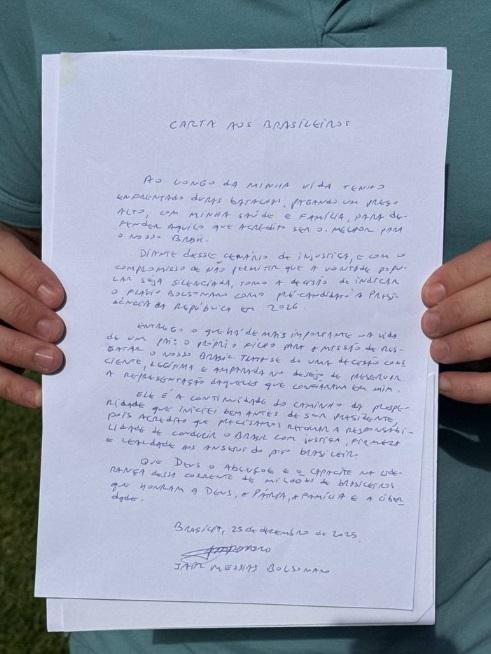 CARTA AOS BRASILEIROS
AO LONGO DA MINHA VIDA TENHO
ENFRENTADO DURAS BATALHAS, PAGANDO UM PREÇO
ALTO, COM MINHA SAÚDE E FAMÍLIA, PARA DE-
FENDER AQUILO QUE ACREDITO SER O MELHOR PARA
O NOSSO BRASIL.
DIANTE DESSE CENÁRIO DE INJUSTIÇA, E COM O
COMPROMISSO DE NÃO PERMITIR QUE A VONTADE POPU-
LAR SEJA SILENCIADA, TOMO A DECISÃO DE INDICAR
O FLÁVIO BOLSONARO COMO PRÉ-CANDIDATO À PRESI-
DÊNCIA DA REPÚBLICA EM 2026.
ENTREGO O QUE HÁ DE MAIS IMPORTANTE NA VIDA
DE UM PAI: O PRÓPRIO FILHO PARA A MISSÃO DE RES-
GATAR O NOSSO BRASIL. TRATA-SE DE UMA DECISÃO CONS-
CIENTE, LEGÍTIMA E AMPARADA NO DESEJO DE PRESERVAR
A REPRESENTAÇÃO DAQUELES QUE CONFIARAM EM MIM.
ELE É A CONTINUIDADE DO CAMINHO DA PROSPE-
RIDADE QUE INICIEI BEM ANTES DE SER PRESIDENTE,
POIS ACREDITO QUE PRECISAMOS RETOMAR A RESPONSABI-
LIDADE DE CONDUZIR O BRASIL COM JUSTIÇA, FIRMEZA
E LEALDADE AOS ANSEIOS DO POVO BRASILEIRO.
QUE DEUS O ABENÇOE E O CAPACITE NA LIDE-
RANÇA DESSA CORRENTE DE MILHÕES DE BRASILEIROS
QUE HONRAM A DEUS, A PÁTRIA, A FAMÍLIA E A LIBER-
DADE.
BRASÍLIA, 25 de dezembro de 2025.
JAIR MESSIAS BOLSONARO